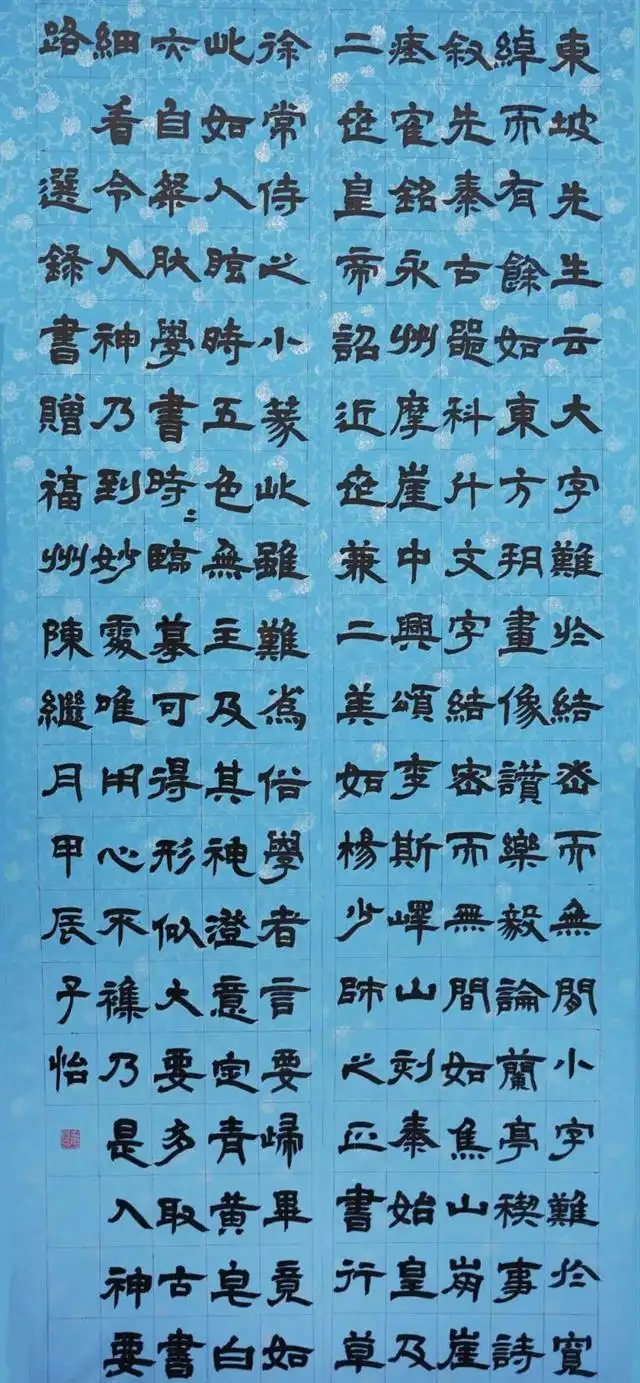 東坡先生云大字難於結密而無間小字難於寬
綽而有餘如東方朔畫像讚樂毅論蘭亭禊事詩
叙先秦古器科斗文字結密而無間如焦山崩崖
瘞寉銘永州摩崖中興頌李斯嶧山刻秦始皇及
二世皇帝詔近世兼二美如楊少師之正書行草
徐常侍之小篆此雖難為俗學者言要歸畢竟如
此如人眩時五色無主及其神澄意定青黃皂白
亦自粲肰學書時〻臨摹可得形似大要多取古書
細看令入神乃到妙處唯用心不襍乃是入神要
路 選錄書贈福州陳繼月甲辰子怡